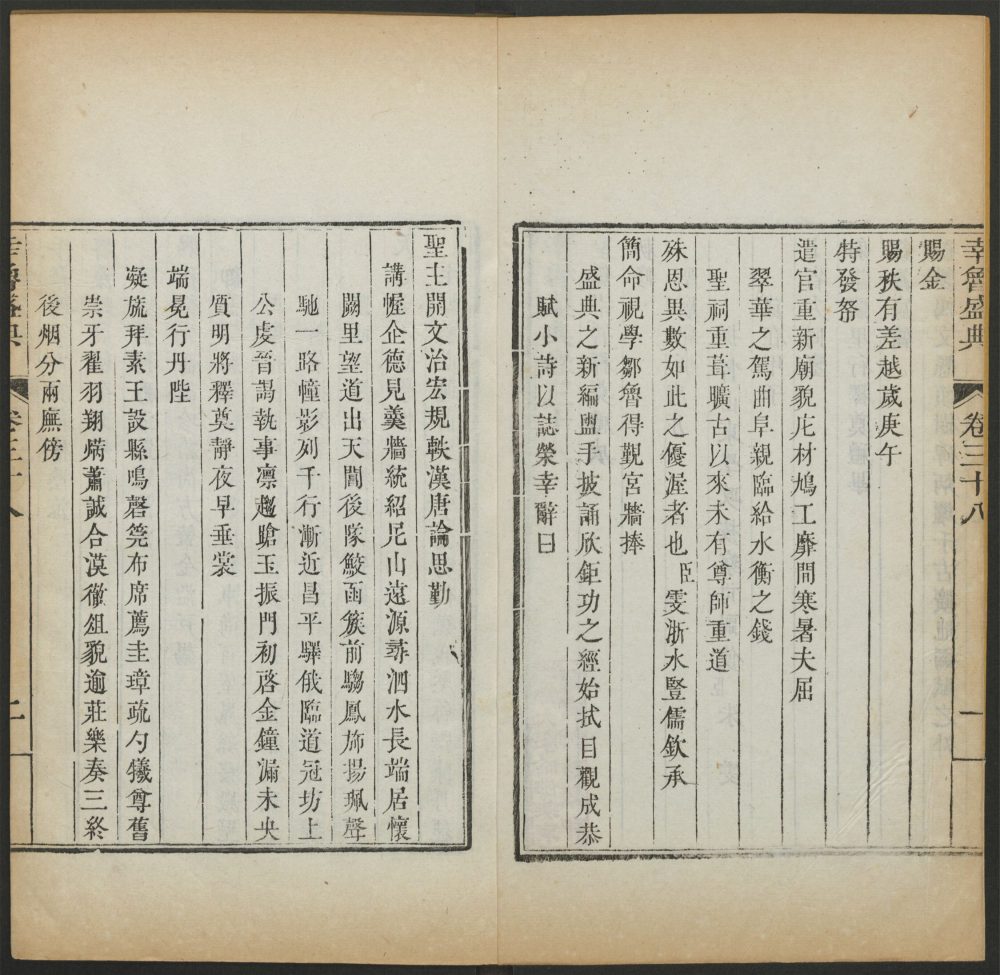 幸魯盛典 卷三十八 一
賜金
賜秩有差越歲庚午
特發帑
遣官重新廟貌庀材鳩工靡間寒暑夫屈
翠華之駕曲阜親臨給水衡之錢
聖祠重葺曠古以來未有尊師重道
殊恩異數如此之優渥者也臣雯浙水豎儒欽承
簡命視學鄒魯得覲宮牆捧
盛典之新編盥手披誦欣鉅功之經始拭目觀成恭
賦小詩以誌榮幸辭曰
聖主開文治宏規軼漢唐論思勤
講幄企德見羹牆統紹尼山遠源尋泗水長端居懷
闕里望道出天閶後隊鮫函簇前騶鳳斾揚珮聲
馳一路幢影列千行漸近昌平驛俄臨道冠坊上
公虔晉謁執事凛趨蹌玉振門初啓金鐘漏未央
質明將釋奠靜夜早垂裳
端冕行丹陛
凝旒拜素王設縣鳴磬筦布席薦圭璋疏勺犧尊舊
崇牙翟羽翔焫蕭誠合漠徹俎貌逾莊樂奏三終
後烟分兩廡傍
幸魯盛典 卷三十八 二